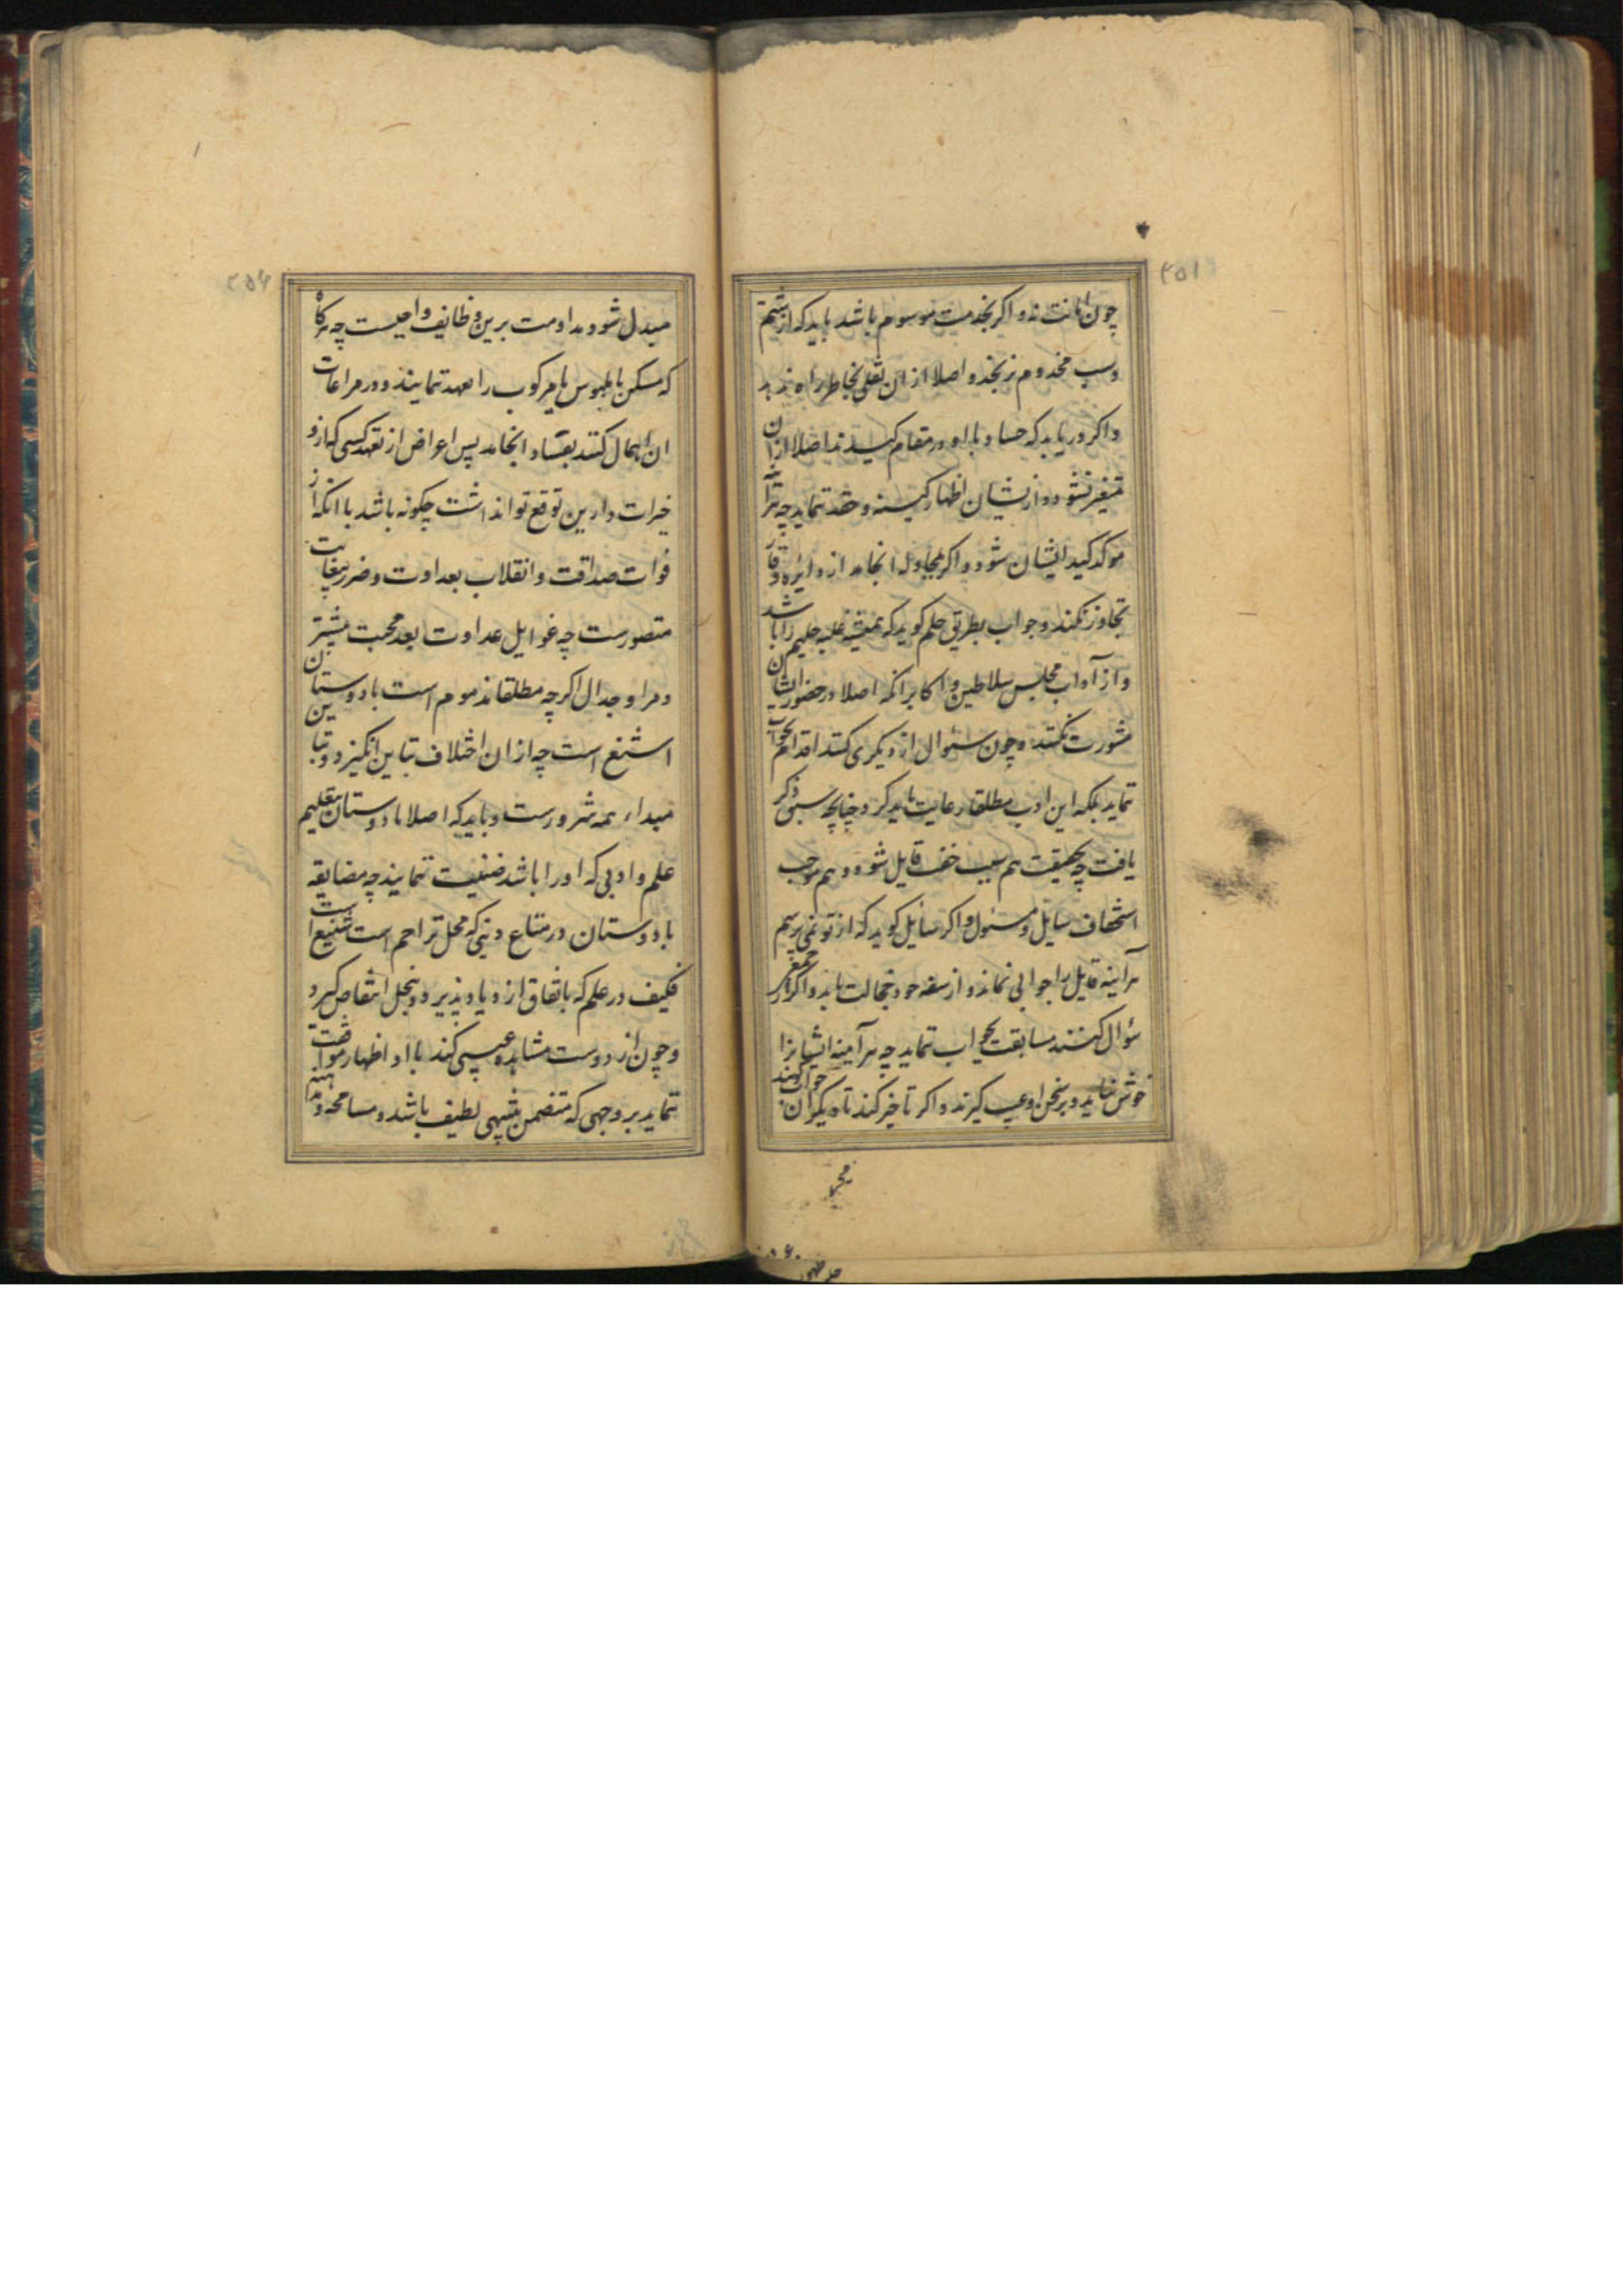 ۲۵۱
چون امانت نهد و اکر بخدمت موسوم باشد باید که از شتم
وسب مخدوم نرنجد و اصلا از ان ثقلی بخاطر راه ندهد
و اکر دریابد که حساد با او در مقام کیدند اصلا از ان
متغیر نشود و از یشان اظهار کینه و حقد ننماید چه هرآینه
موکد کید ایشان شود و اکر بمجاوله انجامد از دایره وقار
تجاوز نکند و جواب بطریق حلم کوید که همیشه غلبه حلیم را باشد
و از آداب مجلس سلاطین و اکابر انکه اصلا در حضور ایشان
مشورت نکنند و چون سئوال از دیکری کنند اقدام بجواب
ننماید بلکه این ادب مطلقا رعایت باید کرد چنانچه سبق ذکر
یافت چه بحقیقت هم سبب خفت قایل شود و هم موجب
استخفاف سایل و مسئول و اکر سایل کوید که از تو نمی پرسیم
هرآینه قایل را جوابی نماند و از سفه خود خجالت یابد و اکر از جمعی
سؤال کنند مسابقت بجواب ننماید چه هرآینه ایشانرا
خوش نیاید و بر سخن او عیب کیرند و اکر تاخیر کند تا دیکران جواب کویند
۲۵۲
مبدل شود و مداومت برین وظایف واجبست چه هرکاه
که مسکن یا ملبوس یا مرکوب را تعهد ننمایند و در مراعات
ان اهمال کنند بفساد انجامد پس اعراض از تعهد کسی که ازو
خیرات دارین توقع توان داشت چکونه باشد با انکه از
فوات صداقت و انقلاب بعداوت و ضرر بغایت
متصورست چه غوایل عداوت بعد محبت بیشتر
و مرا و جدال اکرچه مطلقا مذموم است با دوستان
اشنع است چه از ان اختلاف تباین انکیزد و تباین
مبداء همه شرورست و باید که اصلا با دوستان بتعلیم
علم و ادبی که او را باشد ضنیت ننمایند چه مضایقه
با دوستان در متاع دنیی که محل تزاحم است شنیع است
فکیف در علم که بانفاق ازدیاد پذیرد و ببخل انتقاص کیرد
و چون از دوست مشاهده عیبی کند با او اظهار موافقت
ننماید بر وجهی که متضمن تنبیهی لطیف باشد و مسامحه و مداهنه